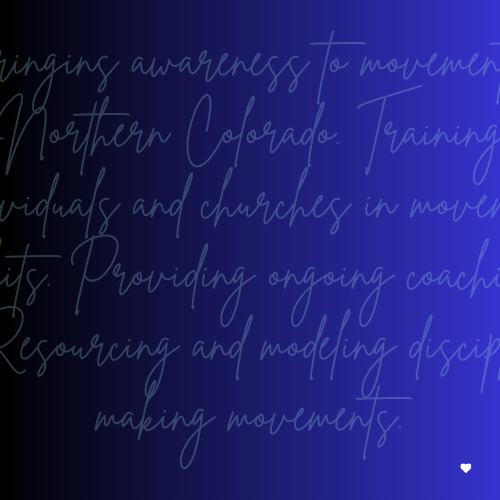 ringins awareness to movemen
Northern Colorado. Training
viduals and churches in movem
its. Providing ongoing coachi
Resourcing and modeling discip
making movements.